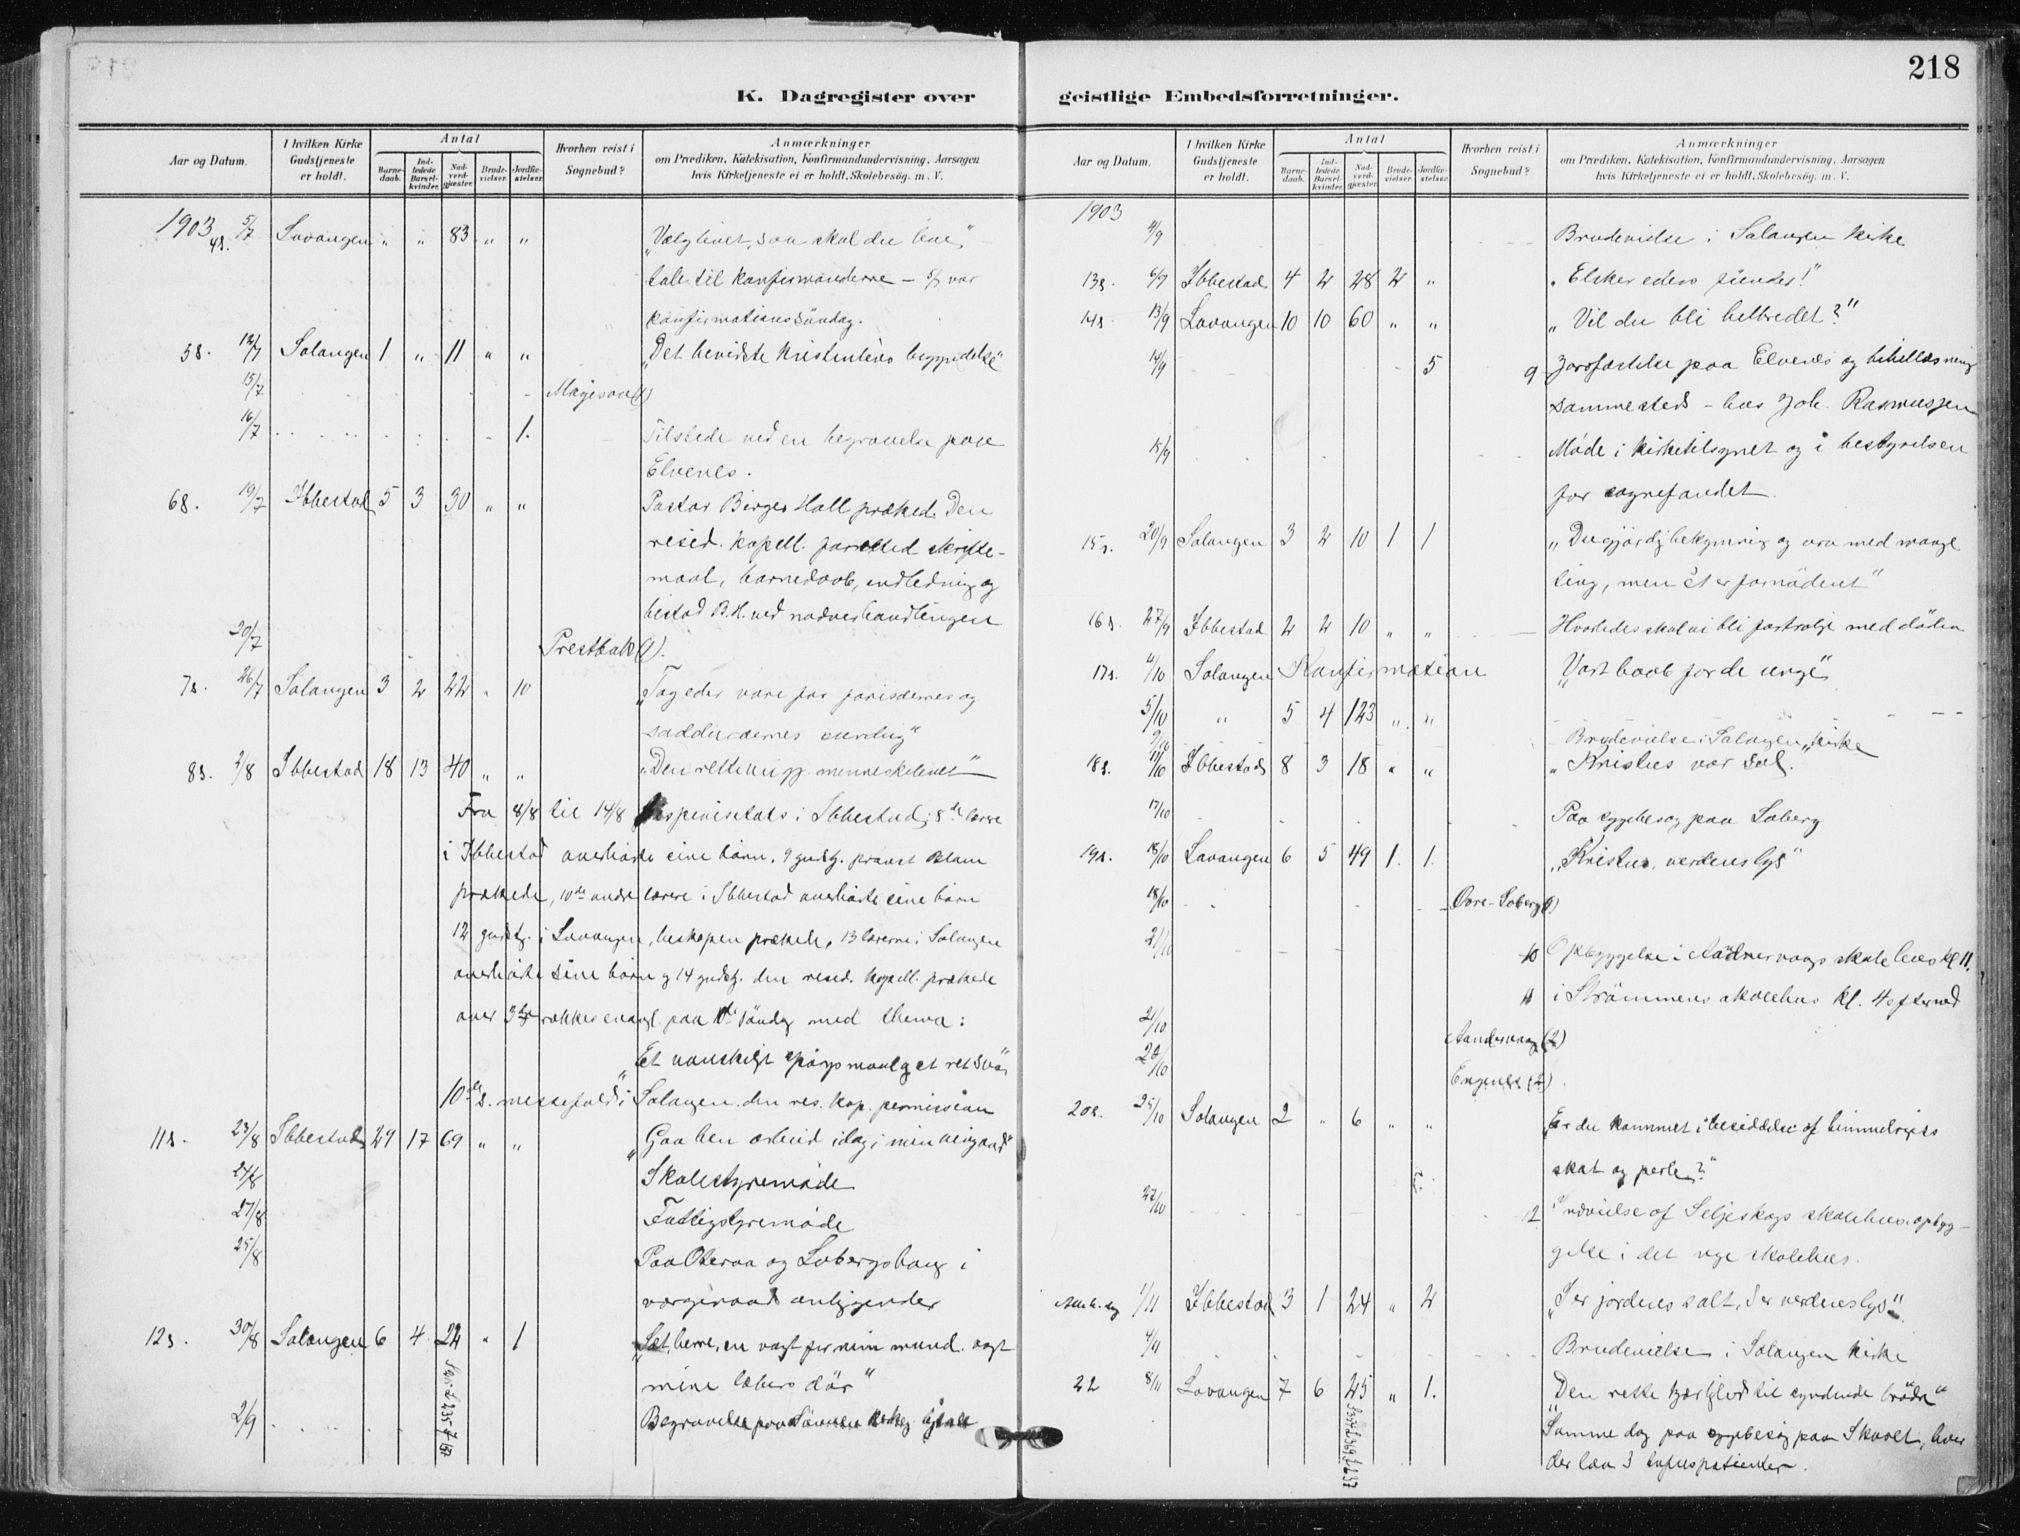 218
K. Dagregister over geistlige Embedsforretninger.
Aar og Datum. I hvilken Kirke Gudstjeneste er holdt. Antal Barne-daab. Ind-ledede Barsel-kvinder. Nad-verd-gjæster. Brude-vielser. Jordfæ-stelser. Hvorhen reist i Sognebud? Anmærkninger om Prædiken, Katekisation, Konfirmandundervisning, Aarsagen hvis Kirketjeneste ei er holdt, Skolebesøg. m. V.
1903 4s. 5/7 Lavangen " " 83 " " "Vælg livet, saa skal du leve",
tale til konfirmanderne – 5/7 var
konfirmationssöndag.
5s. 12/7 Salangen 1 " 11 " " "Det bevidste kristenlivs begyndelse"
15/7 (1)
16/7 1. Tilstede ved en begravelse paa
Elvenes.
6s. 19/7 Ibbestad 5 3 30 " " Pastor Birger Hall præked. Den
resid. kapell. forretted skrifte-
maal, barnedaab, indledning og
bistod B.H. ved nadverhandlingen
20/7 Prestbak (1).
7s. 26/7 Salangen 3 2 22 " 10 "Tag eder vare for farisæernes og
sadducæernes surdeig"
8s. 2/8 Ibbestad 18 13 40 " " "Den rette menneskelivet"
Fra 8/8 til 14/8 bispevisitats i Ibbestad; 8de lærere
i Ibbestad overhørte sine børn, 9 gudstj. provst
prækede, 10de andre lærere i Ibbestad overhørte sine børn
12 gudstj. i Lavangen, biskopen prækede, 13 lærerne i Salangen
overhørte sine børn og 14 gudstj. den resid. kapell. prækede
over 3die rækkes evangl. paa 10de söndag med thema:
"Et vanskeligt spörgsmaal og et ret svar
10de s. messefald i Salangen. den res. kap. permission
11s. 23/8 Ibbestad 29 17 69 " " "Gaa hen arbeid idag i min vingaard"
24/8 Skolestyremöde
27/8 Fattigstyremöde
25/8 Paa Oteraa og Lobergshaug i
værgeraads anliggender
12s. 30/8 Salangen 6 4 22 " 1 "Sæt, herre, en vagt for min mund, vogt
mine læbers dör"
2/9 Begravelse paa
1903
4/9 Brudevielse i Salangen kirke
13s. 6/9 Ibbestad 4 2 28 2 " "Elsker eders fiender!"
14s. 13/9 Lavangen 10 10 60 " " "Vil du bli helbredet?"
14/9 5 9 Jordfæstelse paa Elvenes og bibellæsning
sammesteds – hos Joh. Rasmussen
15/9 Möde i kirketilsynet og i bestyrelsen
for sognefondet.
15s. 20/9 Salangen 3 2 10 1 1 "Du gjør dig bekymring og uro med mange
ting, men ét er fornödent"
16s. 27/9 Ibbestad 2 2 10 " " Hvorledes skal vi bli fortrolige med döden
17s. 4/10 Salangen Konfirmation "Vort haab for de unge"
5/10 " 5 4 123 " "
9/10 Brudevielse i Salangen kirke
18s. 11/10 Ibbestad 8 3 18 " " "Kristus vor sol.
17/10 Paa sygebesög paa Soberg
19s. 18/10 Lavangen 6 5 49 1. 1. "Kristus, verdens lys"
18/10 Övre-Soberg (1)
21/10 10 Opbyggelse i skolehus kl 11.
11 i Strömmens skolehus kl. 4 efterm
21/10 (2)
20/10 Engenes (2).
20s. 25/10 Salangen 2 " 6 " " "Er du kommet i besiddelse af himmelriges
skat og perle?"
27/10 12 Indvielse af Seljeskogs skolehus. opbyg-
gelse i det nye skolehus.
Alleh. dag 1/11 Ibbestad 3 1 24 " 2 "I er jordens salt, I er verdens lys"
4/11 Brudevielse i Salangen kirke
22 8/11 Lavangen 7 6 25 " 1. "Den rette kjærlighed til syndende bröde"
Samme dag paa sygebesög paa Skavlt, hvor
der laa 3 tyfuspatienter.